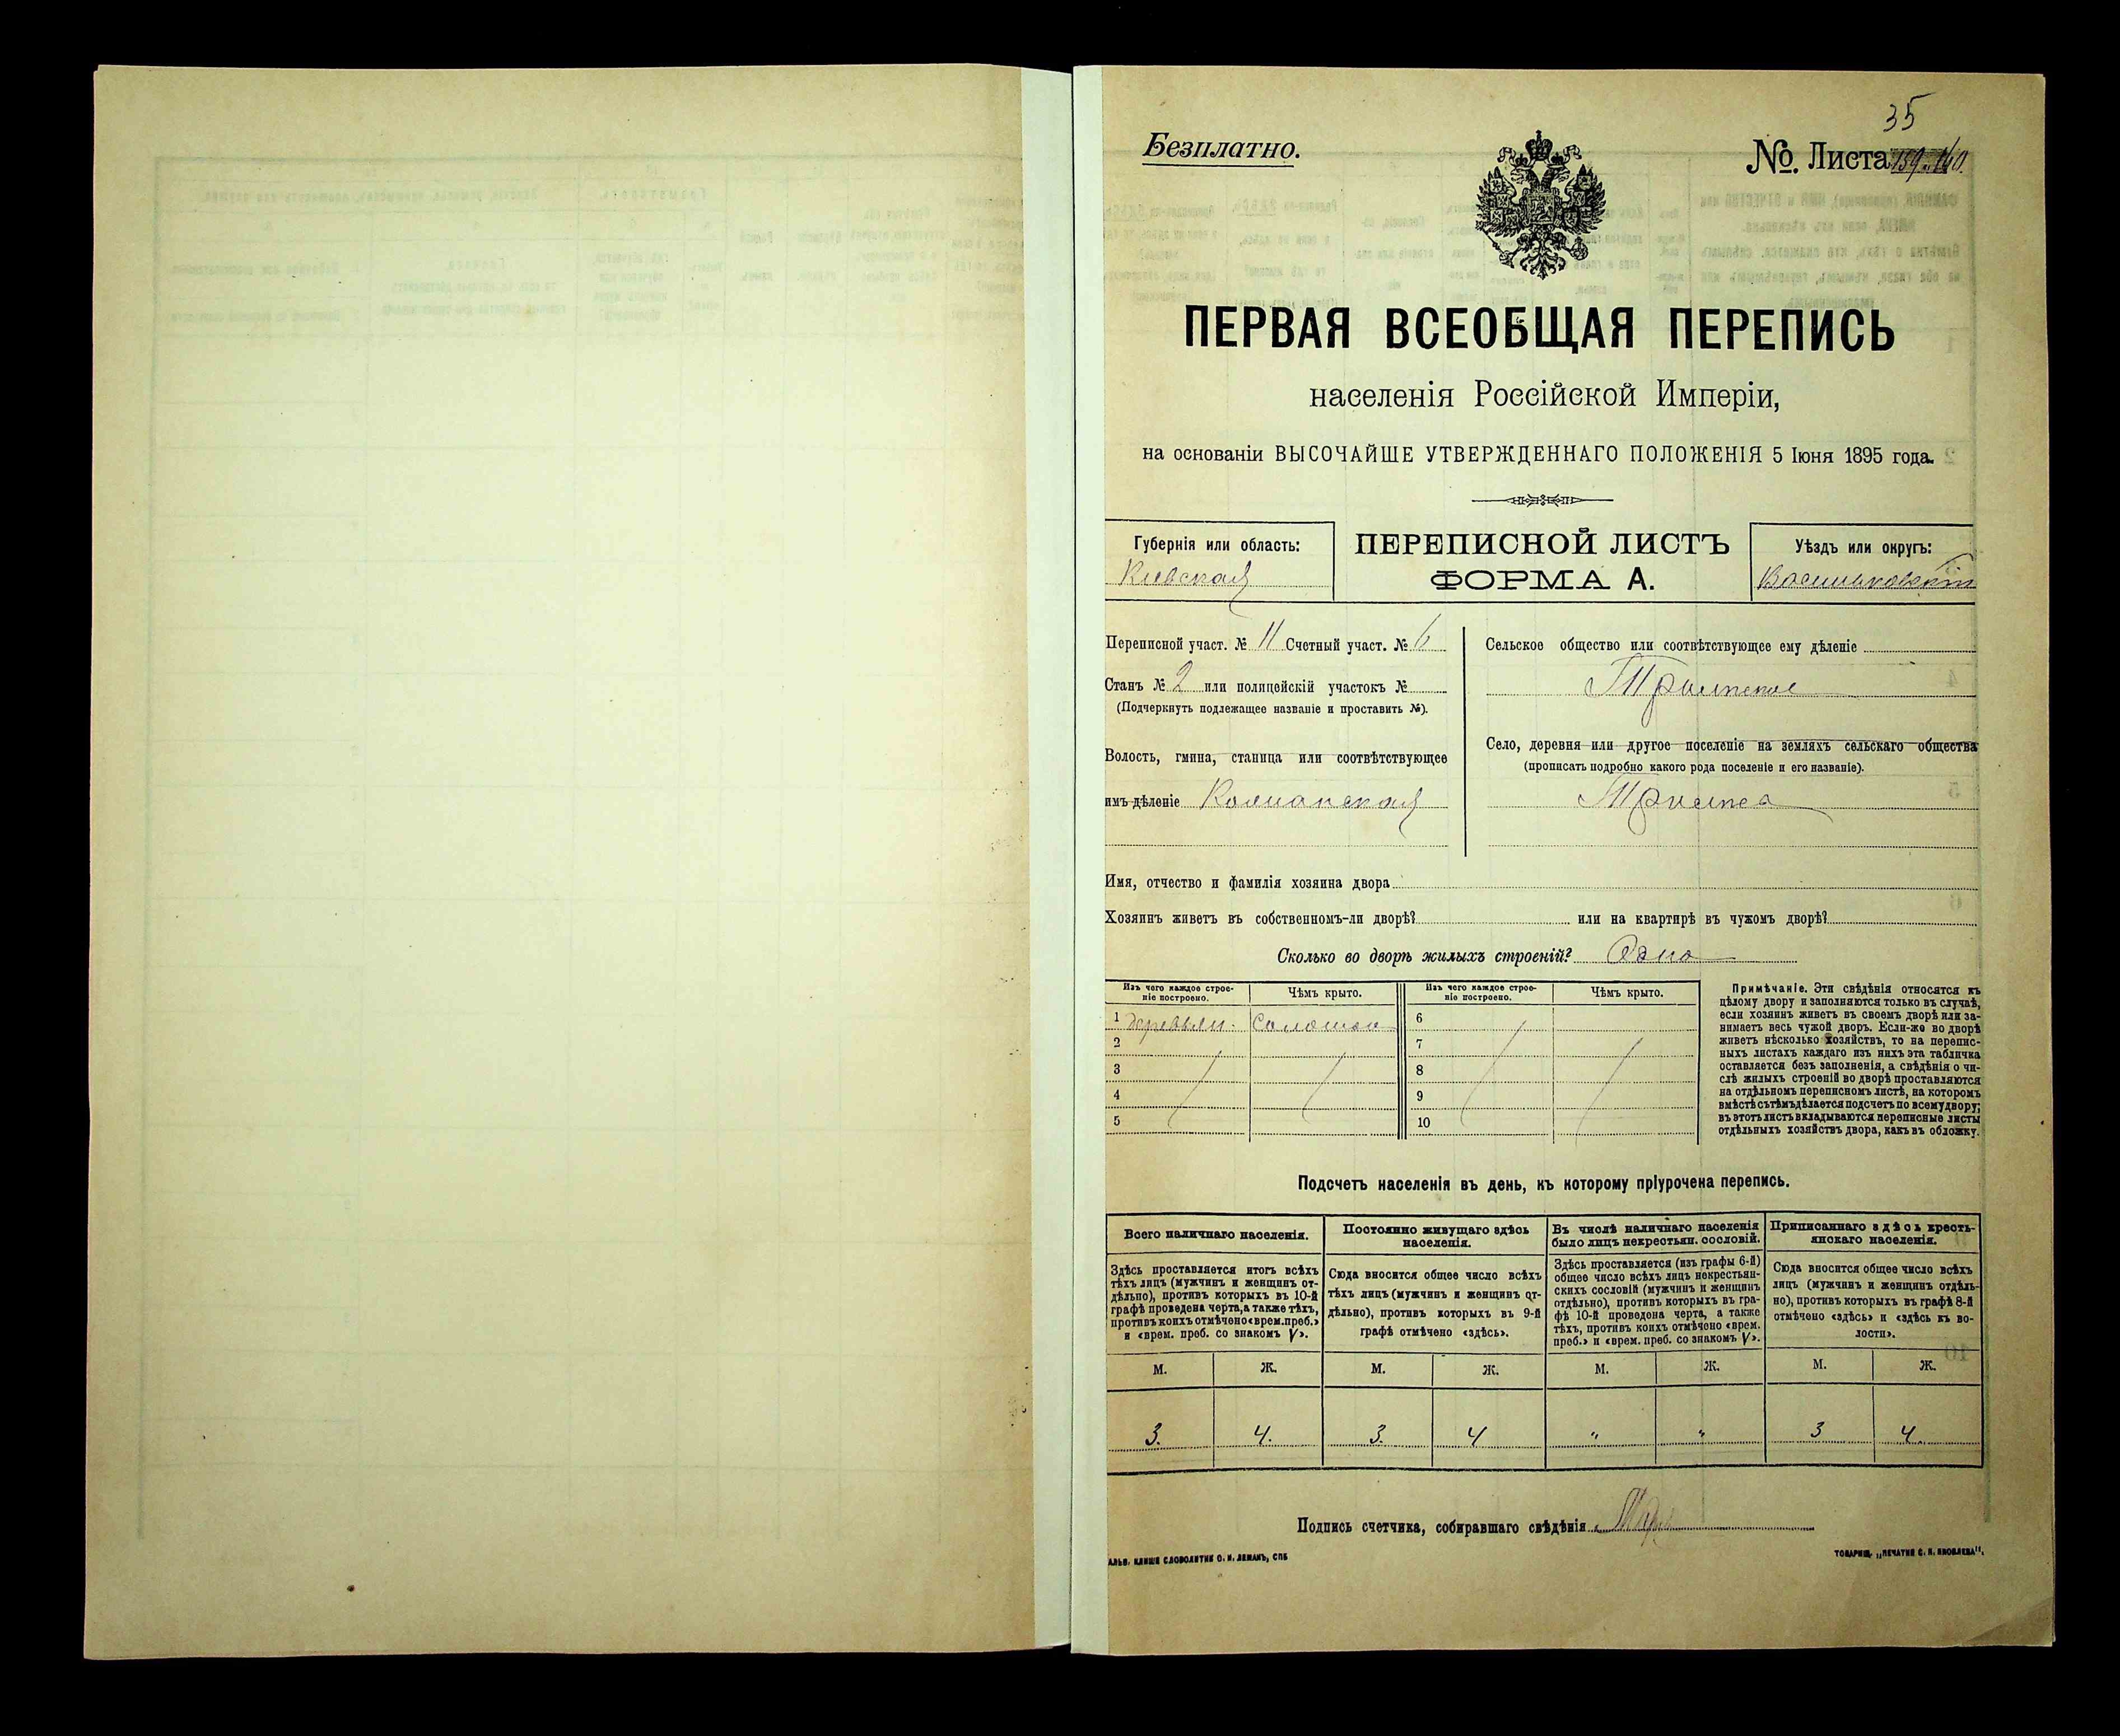 35
Безплатно.
№. Листа 159-160.
ПЕРВАЯ ВСЕОБЩАЯ ПЕРЕПИСЬ
населенія Россійской Имперіи,
на основаніи ВЫСОЧАЙШЕ УТВЕРЖДЕННАГО ПОЛОЖЕНІЯ 5 Іюня 1895 года.
Губернія или область:
Кіевская
ПЕРЕПИСНОЙ ЛИСТЪ
ФОРМА А.
Уѣздъ или округъ:
Васильковскій
Переписной участ. № 11 Счетный участ. № 6
Станъ № 2 или полицейскій участокъ №
(Подчеркнуть подлежащее названіе и проставить №).
Волость, гмина, станица или соотвѣтствующее
имъ дѣленіе
Сельское общество или соотвѣтствующее ему дѣленіе
Село, деревня или другое поселеніе на земляхъ сельскаго общества
(прописать подробно какого рода поселеніе и его названіе).
Имя, отчество и фамилія хозяина двора
Хозяинъ живетъ въ собственномъ-ли дворѣ? или на квартирѣ въ чужомъ дворѣ?
Сколько во дворѣ жилыхъ строеній? Одно
Изъ чего каждое строе-
ніе построено.
Чѣмъ крыто.
Изъ чего каждое строе-
ніе построено.
Чѣмъ крыто.
1 деревян. Соломою 6
2 7
3 8
4 9
5 10
Примѣчаніе. Эти свѣдѣнія относятся къ
цѣлому двору и заполняются только въ случаѣ,
если хозяинъ живетъ въ своемъ дворѣ или за-
нимаетъ весь чужой дворъ. Если-же во дворѣ
живетъ нѣсколько хозяйствъ, то на перепис-
ныхъ листахъ каждаго изъ нихъ эта табличка
оставляется безъ заполненія, а свѣдѣнія о чи-
слѣ жилыхъ строеній во дворѣ проставляются
на отдѣльномъ переписномъ листѣ, на которомъ
вмѣстѣ съ тѣмъ дѣлается подсчетъ по всему двору;
въ этотъ листъ вкладываются переписные листы
отдѣльныхъ хозяйствъ двора, какъ въ обложку.
Подсчетъ населенія въ день, къ которому пріурочена перепись.
Всего наличнаго населенія.
Здѣсь проставляется итогъ всѣхъ
тѣхъ лицъ (мужчинъ и женщинъ от-
дѣльно), противъ которыхъ въ 10-й
графѣ проведена черта, а также тѣхъ,
противъ коихъ отмѣчено «врем. преб.»
и «врем. преб. со знакомъ V».
Постоянно живущаго здѣсь
населенія.
Сюда вносится общее число всѣхъ
тѣхъ лицъ (мужчинъ и женщинъ от-
дѣльно), противъ которыхъ въ 9-й
графѣ отмѣчено «здѣсь».
Въ числѣ наличнаго населенія
было лицъ некрестьян. сословій.
Здѣсь проставляется (изъ графы 6-й)
общее число всѣхъ лицъ некрестьян-
скихъ сословій (мужчинъ и женщинъ
отдѣльно), противъ которыхъ въ гра-
фѣ 10-й проведена черта, а также
тѣхъ, противъ коихъ отмѣчено «врем.
преб.» и «врем. преб. со знакомъ V».
Приписаннаго здѣсь кресть-
янскаго населенія.
Сюда вносится общее число всѣхъ
лицъ (мужчинъ и женщинъ отдѣль-
но), противъ которыхъ въ графѣ 8-й
отмѣчено «здѣсь» и «здѣсь къ во-
лости».
М. Ж. М. Ж. М. Ж. М. Ж.
3. 4. 3. 4 " " 3 4
Подпись счетчика, собиравшаго свѣдѣнія
АЛЬВ. КЛИШЕ СЛОВОЛИТНИ О. И. ЛЕМАНЪ, СПБ
ТОВАРИЩ. „ПЕЧАТНЯ С. П. ЯКОВЛЕВА".